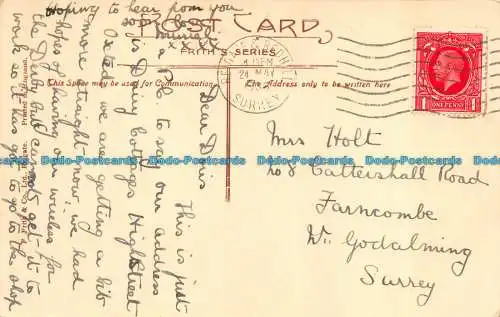 Hoping to hear from you
soon love
Minnie
xxxx
POST CARD
FRITH'S SERIES
This Space may be used for Communication.
The Address only to be written here
Printed in England.
F. Frith & Co., Ltd., Reigate.
24 MAY
SURREY
ONE PENNY
Dear Doris
This is just
a P.C. to say our address
is Dairy Cottages High Street
Oxted we are getting a bit
more straight now, we had
hopes of having our wireless for
the Derby but cannot get it to
work so it has got to go to the shop
Mrs Holt
No 8 Catteshall Road
Farncombe
Nr. Godalming
Surrey
Dodo-Postcards Dodo-Postcards Dodo-Postcards Dodo-Postcards